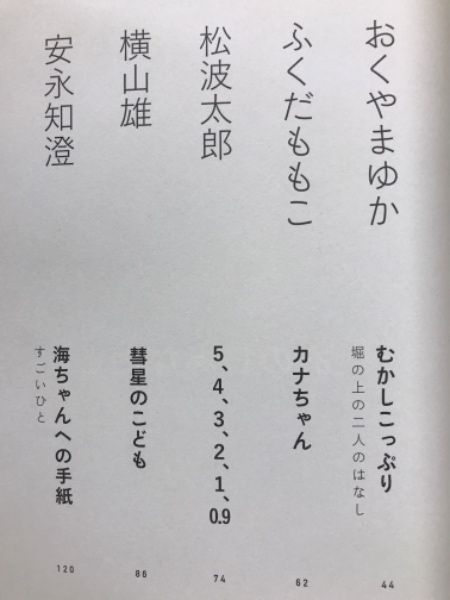 おくやまゆか
むかしこっぷり
堀の上の二人のはなし
44
ふくだももこ
カナちゃん
62
松波太郎
5、4、3、2、1、0.9
74
横山雄
彗星のこども
86
安永知澄
海ちゃんへの手紙
すごいひと
120